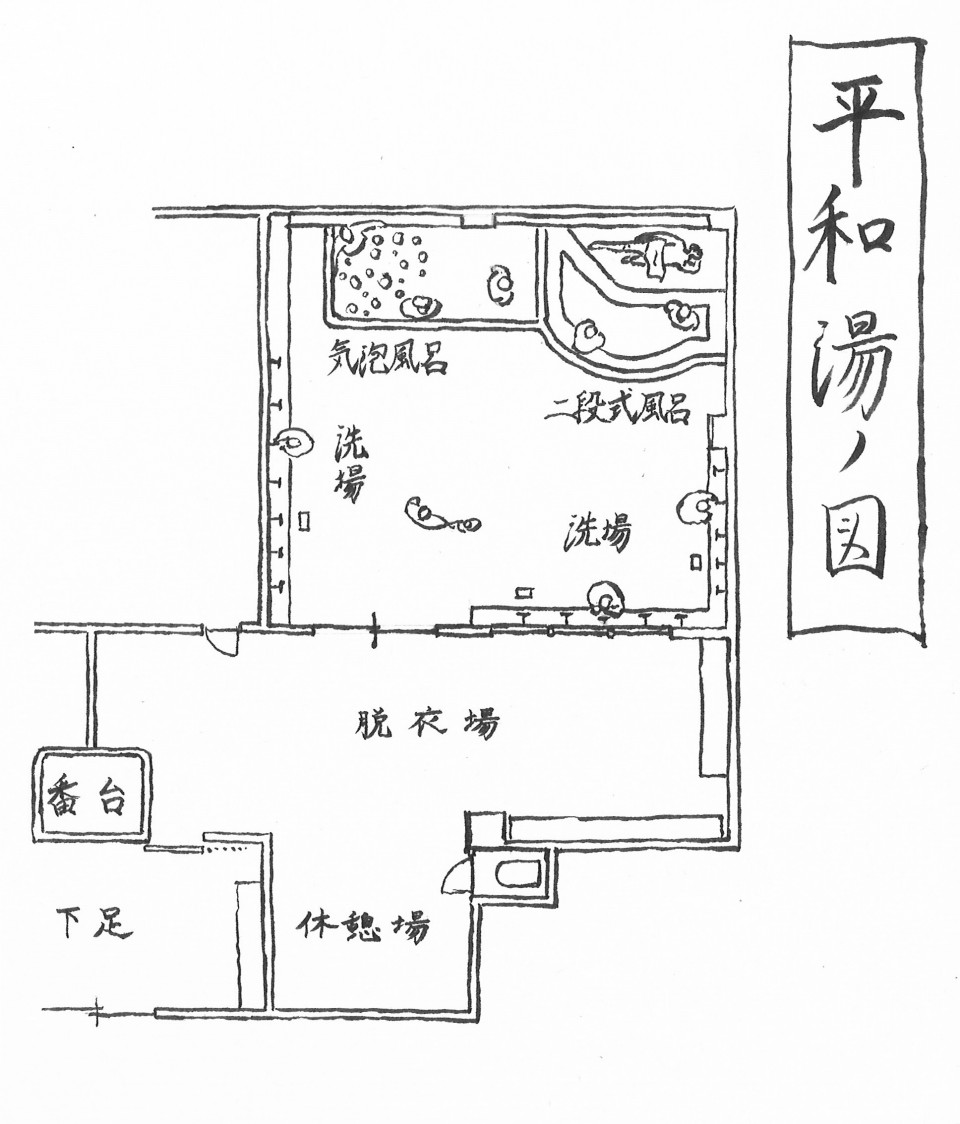 平和湯ノ図
気泡風呂
二段式風呂
洗場
洗場
脱衣場
番台
下足
休憩場